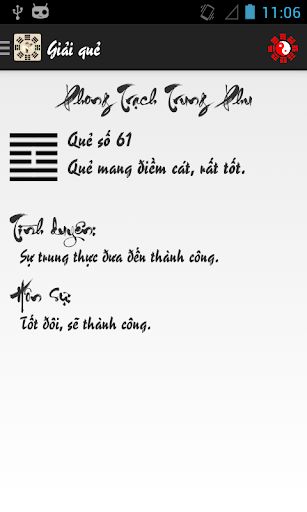 11:06
Giải quẻ
Phong Trạch Trung Phu
Quẻ số 61
Quẻ mang điềm cát, rất tốt.
Tình duyên:
Sự trung thực đưa đến thành công.
Hôn Sự:
Tốt đôi, sẽ thành công.